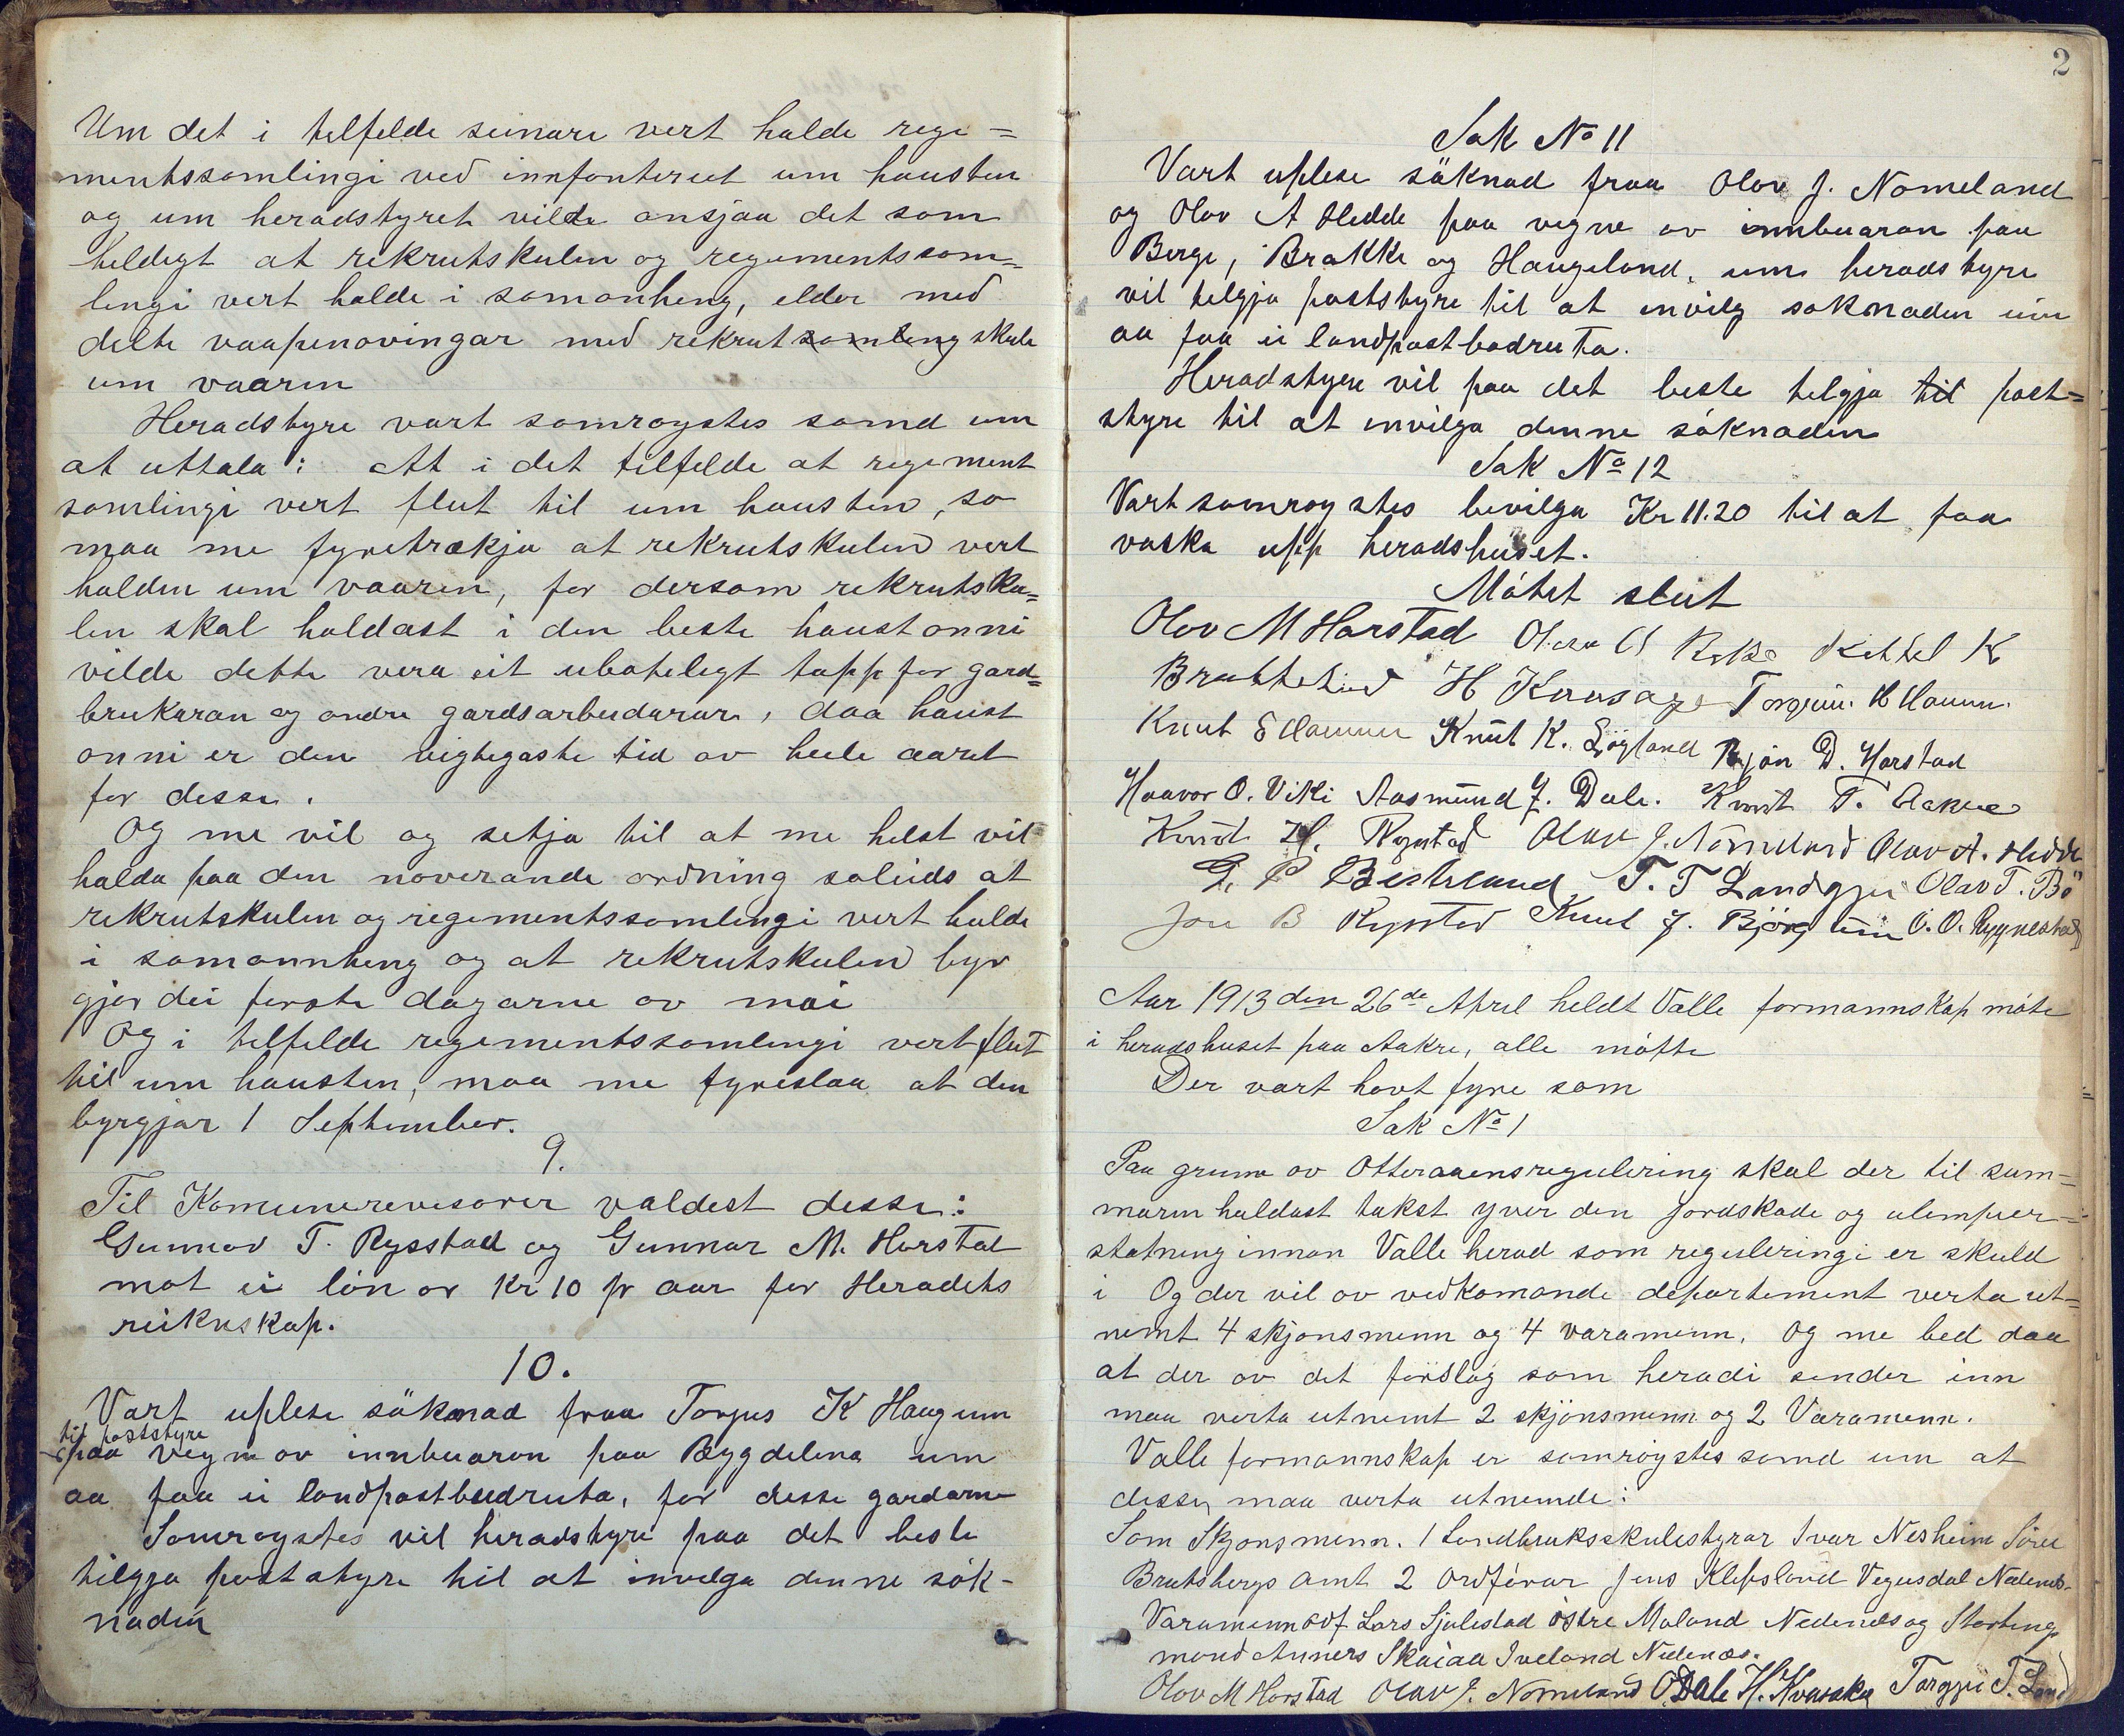 Um det i telfelde seinare vert halde rege=
mentssamlingi ved innfanteriet um hausten
og um heradstyret vilde ansjaa det som
heldigt at rekrutskulen og regementssam=
lingi vert halde i samanheng, elder med
delte vaapenøvingar med rekrutsamling skule
um vaaren
Heradstyre vart samrøystes samd um
at uttala: At i det tilfelde at regement
samlingi vert flut til um hausten, so
maa me fyretrækja at rekrutskulen vert
halden um vaaren, for dersom rekrutsku=
len skal haldast i den beste haustonni
vilde dette vera eit ubøtelegt tapp for gard=
brukaran og andre gardsarbeidarar, daa haust
onni er den vigtegaste tid av heile aaret
for desse.
Og me vil og setja til at me helst vil
halda paa den noverande ordning soleids at
rekrutskulen og regementssamlingi vert halde
i samannheng og at rekrutskulen byr
gjar dei første dagarne av mai
Og i telfelde regementssamlingi vert flut
til um hausten, maa me fyreslaa at den
byrgjar 1 September.
9.
Til Komunerevisorer valdest desse:
Gunnar T. Rysstad og Gunnar M. Harstad
mot ei løn av Kr 10 pr aar for Heradets
reiknskap.
10.
Vart uplese söknad fraa Torjus K Haugum
til poststyre
paa vegne av innbuaron paa Bygdelena um
aa faa ei landpostbudruta, for desse gardarne
Samrøystes vil heradstyre paa det beste
tilgja poststyre til at innvelga denne sök-
naden
2
Sak No 11
Vart uplese söknad fraa Olav J. Nomeland
og Olav A Hedde paa vegne av innbuaran paa
Berge, Brokke og Haugeland, um heradstyre
vil telgja poststyre til at invilg søknaden um
aa faa ei landpostbodruta.
Heradstyre vil paa det beste telgja til post=
styre til at invilga denne söknaden
Sak No 12
Vart samrøystes bevilga Kr 11.20 til at faa
vaska upp heradshuset.
Mötet slut
Olov M Harstad Olav Kettel K
H Torgeir H
Knut Knut K. Løyland D. Harstad
Haavor O. Viki Aasmund J. Dale. Knut T. Aakre
Knut H. Rystad Olav J. Nomeland Olav A. Hedde
G. P T. T Olav T. Bö
Jon B Rysstad Knut J. O. O. Rygnestad
Aar 1913 den 26de April heldt Valle formannskap möte
i heradshuset paa Aakre, alle møtte
Der vart havt fyre som
Sak No 1
Paa grunn av Otteraaensregulering skal der til sum=
maren haldast takst yver den jordskade og ulemper=
statning innan Valle herad som reguleringi er skuld
i Og der vil av vedkomande departement verta ut=
nemt 4 skjønsmenn og 4 varamenn. Og me bed daa
at der av det forslag som heradi sender inn
maa verta utnemt 2 skjønsmenn og 2 Varamenn.
Valle formannskap er samröystes samd um at
desse maa verta utnemde:
Som Skjønsmenn. 1 Landbruksskulestyrar Ivar Nesheim Söve
Bratsbergs Amt 2 Ordförar Jens Klepsland Vegusdal Nedenes.
Varamenn ordf Lars Sjulestad östre Moland Nedenes og Stortings
mand Anners Skaiaa Iveland Nedenæs.
Olov M Harstad Olav J. Nomeland O Dale H. Kvasaker Torgjer T.